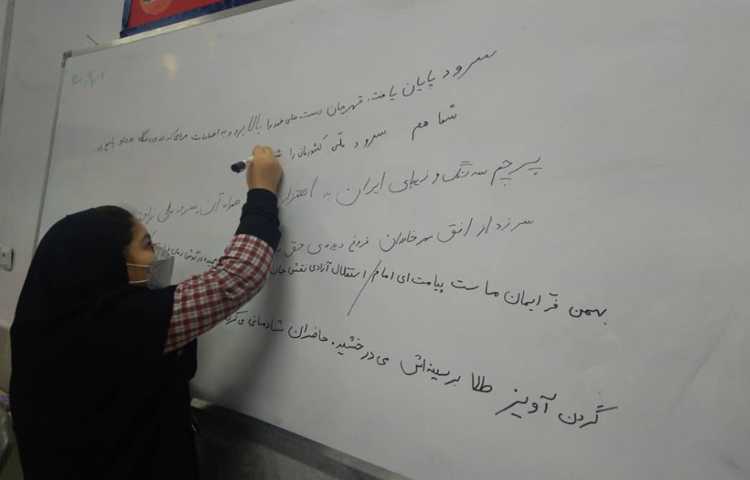 سرود پایان یافت. قهرمان دست های خود را بالا برد و به احساسات
شما هم سرود ملی کشورمان را
پرچم سه رنگ و زیبای ایران به اهتزاز آن سرود ملی
سر زد از افق مهر خاوران فروغ دیده‌ی حق
بهمن فر ایمان ماست پیامت ای امام / استقلال آزادی نقش جان
گردن آویز طلا بر سینه‌اش می درخشید. حاضران شادمانی می کر